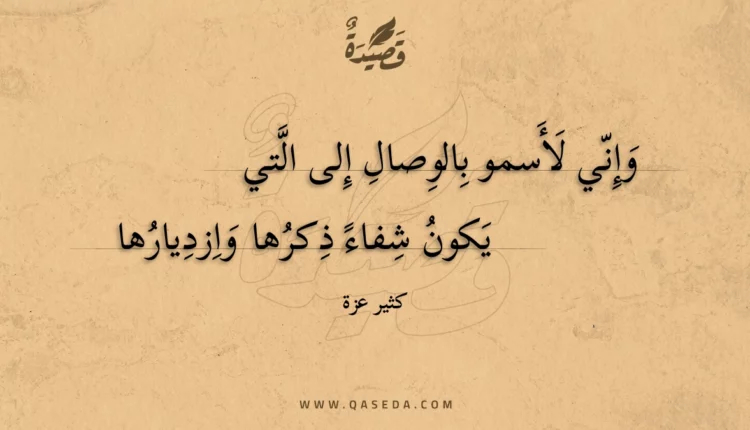 قَصِيْدَةٌ
وَإِنّي لَأَسمو بِالوِصالِ إِلى الَّتي
يَكونُ شِفاءً ذِكرُها وَاِزدِيارُها
كثير عزة
WWW.QASEDA.COM